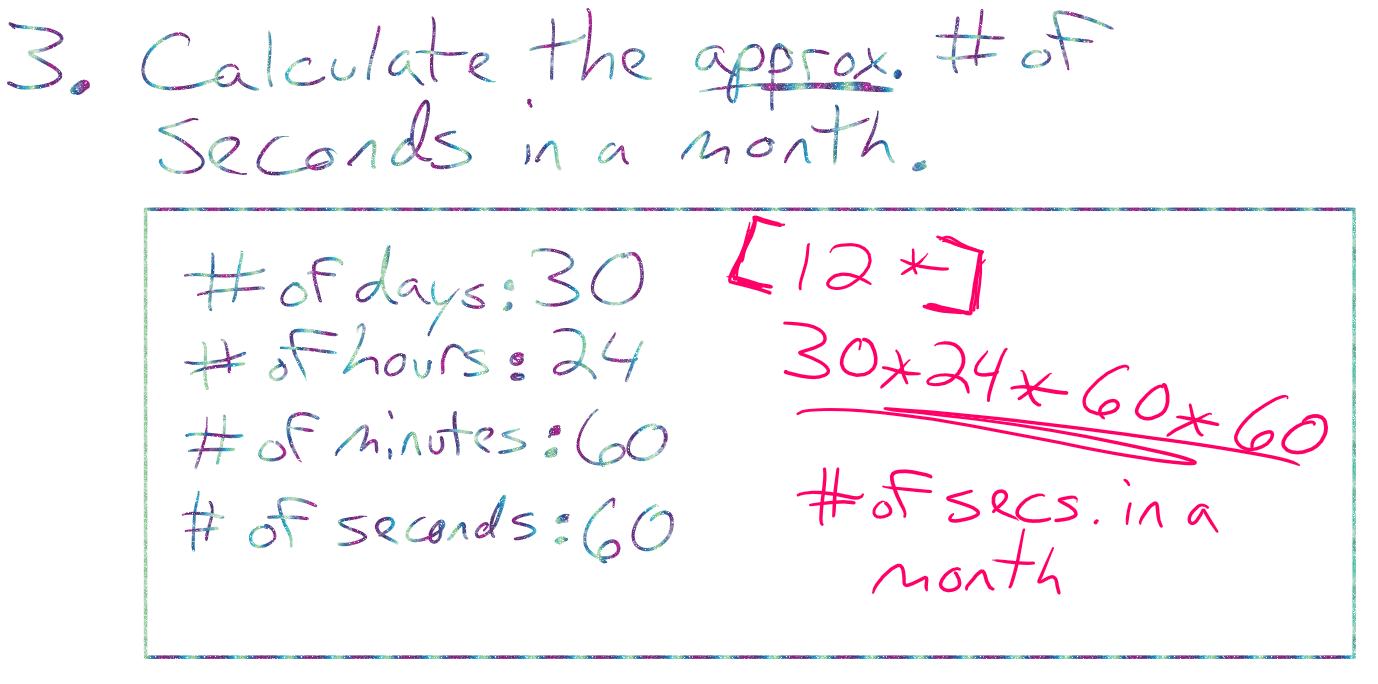 3. Calculate the approx. # of
seconds in a month.
# of days: 30
# of hours: 24
# of minutes: 60
# of seconds: 60
[12 *]
30*24*60*60
# of secs. in a
month